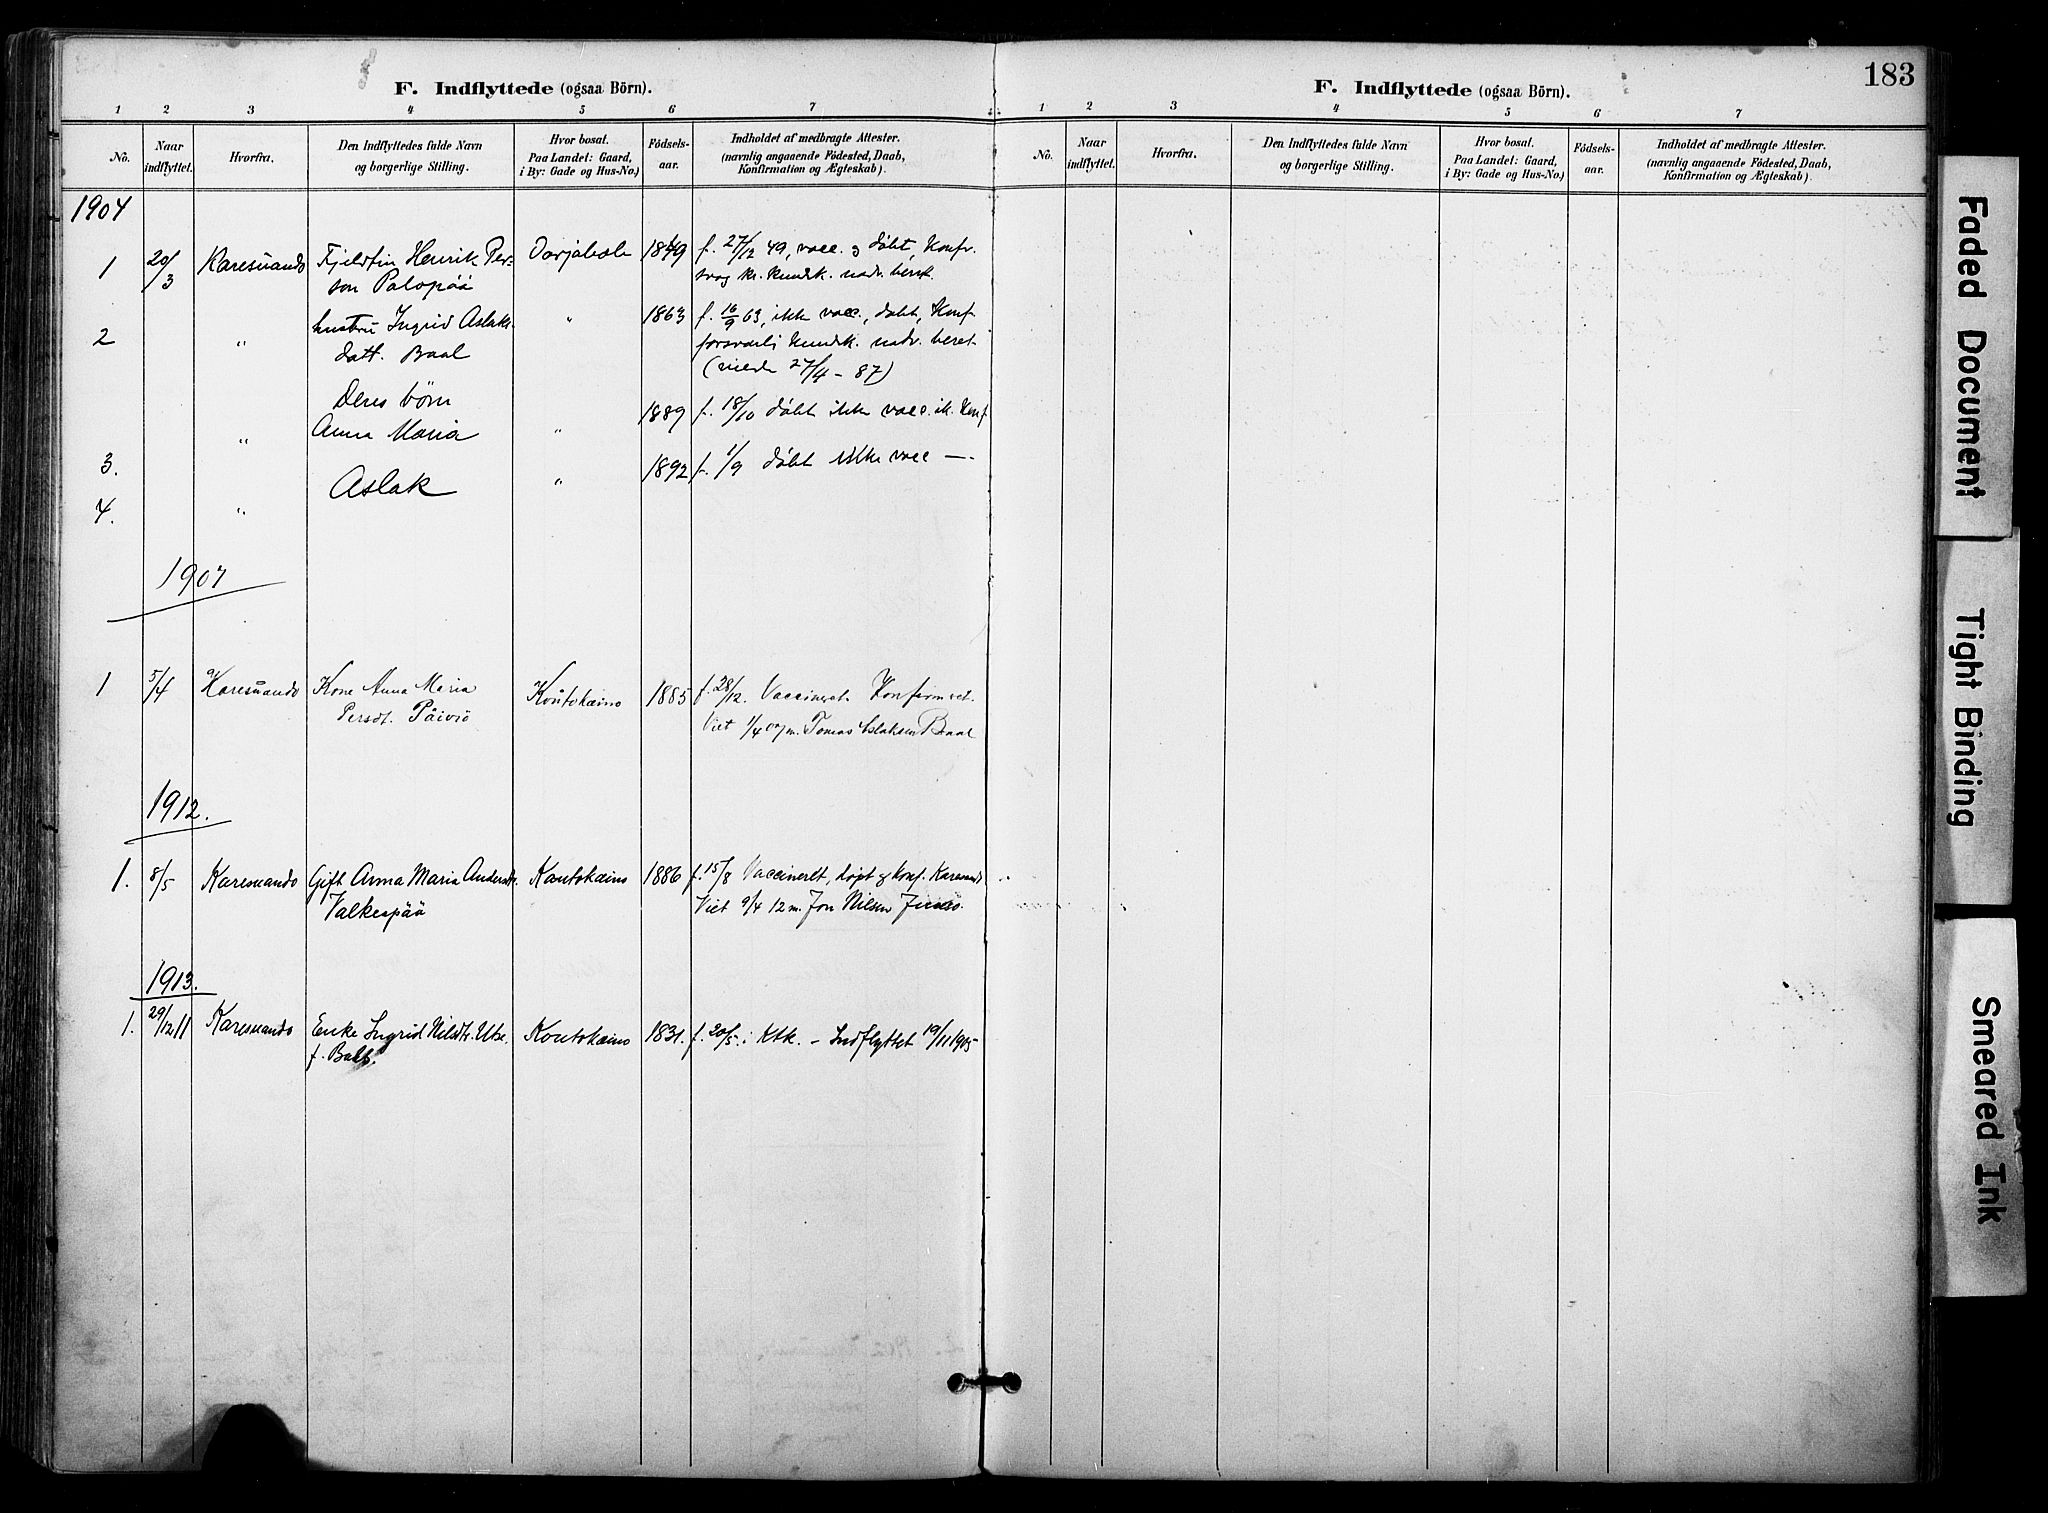 183
F. Indflyttede (ogsaa Börn).
1 2 3 4 5 6 7
No.
Naar indflyttet.
Hvorfra.
Den Indflyttedes fulde Navn
og borgerlige Stilling.
Hvor bosat.
Paa Landet: Gaard,
i By: Gade og Hus-No.)
Födsels-
aar.
Indholdet af medbragte Attester.
(navnlig angaaende Födested, Daab,
Konfirmation og Ægteskab).
1904
1 20/3 Karesuando Fjeldfin Henrik Per- 1849 f. 27/12 49, vacc. g döbt, Konfr.
son Palopää svag kr. kundsk. nadv. beret.
2 " hustru Ingrid Aslaks- " 1863 f. 16/9 63, ikke vacc., döbt, Konf
datt. Baal forsvarlj kundsk. nadv. beret
27/4 - 87)
Deres börn
" Anna Maria " 1889 f. 18/10 döbt ikke vacc. ik. Konf
3. Aslak " 1892 f. 1/9 döbt ikke vacc —
4. "
1907
1 5/4 Karesuando Kone Anna Maria Koutokæino 1885 f. 28/12. Vaccineret Konfirmeret.
Persdt. Päiviö Viet 1/4 07 m. Tomas Aslaksen Baal
1912.
1. 8/5 Karesuando Gift Anna Maria Andersdtr. Kautokæino 1886 f. 15/8 Vaccineret, döpt g konf. Karesuando
Valkeapää Viet 9/4 12 m. Jon Nilsen
1913.
1. 29/12 11 Karesuando Enke Ingrid Nilsdtr. Utse. Koutokæino 1831. f. 20/5. i Ktk. – Indflyttet 19/11 1905
f.
F. Indflyttede (ogsaa Börn).
1 2 3 4 5 6 7
No.
Naar
indflyttet.
Hvorfra.
Den Indflyttedes fulde Navn
og borgerlige Stilling.
Hvor bosat.
Paa Landet: Gaard,
i By: Gade og Hus-No.)
Födsels-
aar.
Indholdet af medbragte Attester.
(navnlig angaaende Födested, Daab,
Konfirmation og Ægteskab).
Faded Document
Tight Binding
Smeared Ink